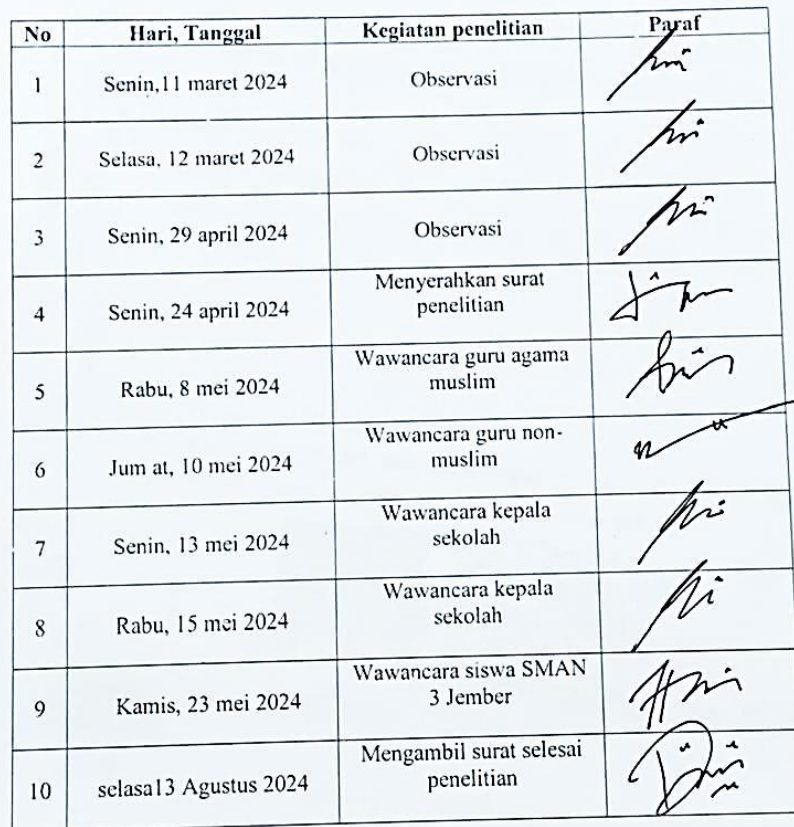 No Hari, Tanggal Kegiatan penelitian Paraf
1 Senin,11 maret 2024 Observasi
2 Selasa, 12 maret 2024 Observasi
3 Senin, 29 april 2024 Observasi
4 Senin, 24 april 2024 Menyerahkan surat
penelitian
5 Rabu, 8 mei 2024 Wawancara guru agama
muslim
6 Jum at, 10 mei 2024 Wawancara guru non-
muslim
7 Senin, 13 mei 2024 Wawancara kepala
sekolah
8 Rabu, 15 mei 2024 Wawancara kepala
sekolah
9 Kamis, 23 mei 2024 Wawancara siswa SMAN
3 Jember
10 selasa13 Agustus 2024 Mengambil surat selesai
penelitian